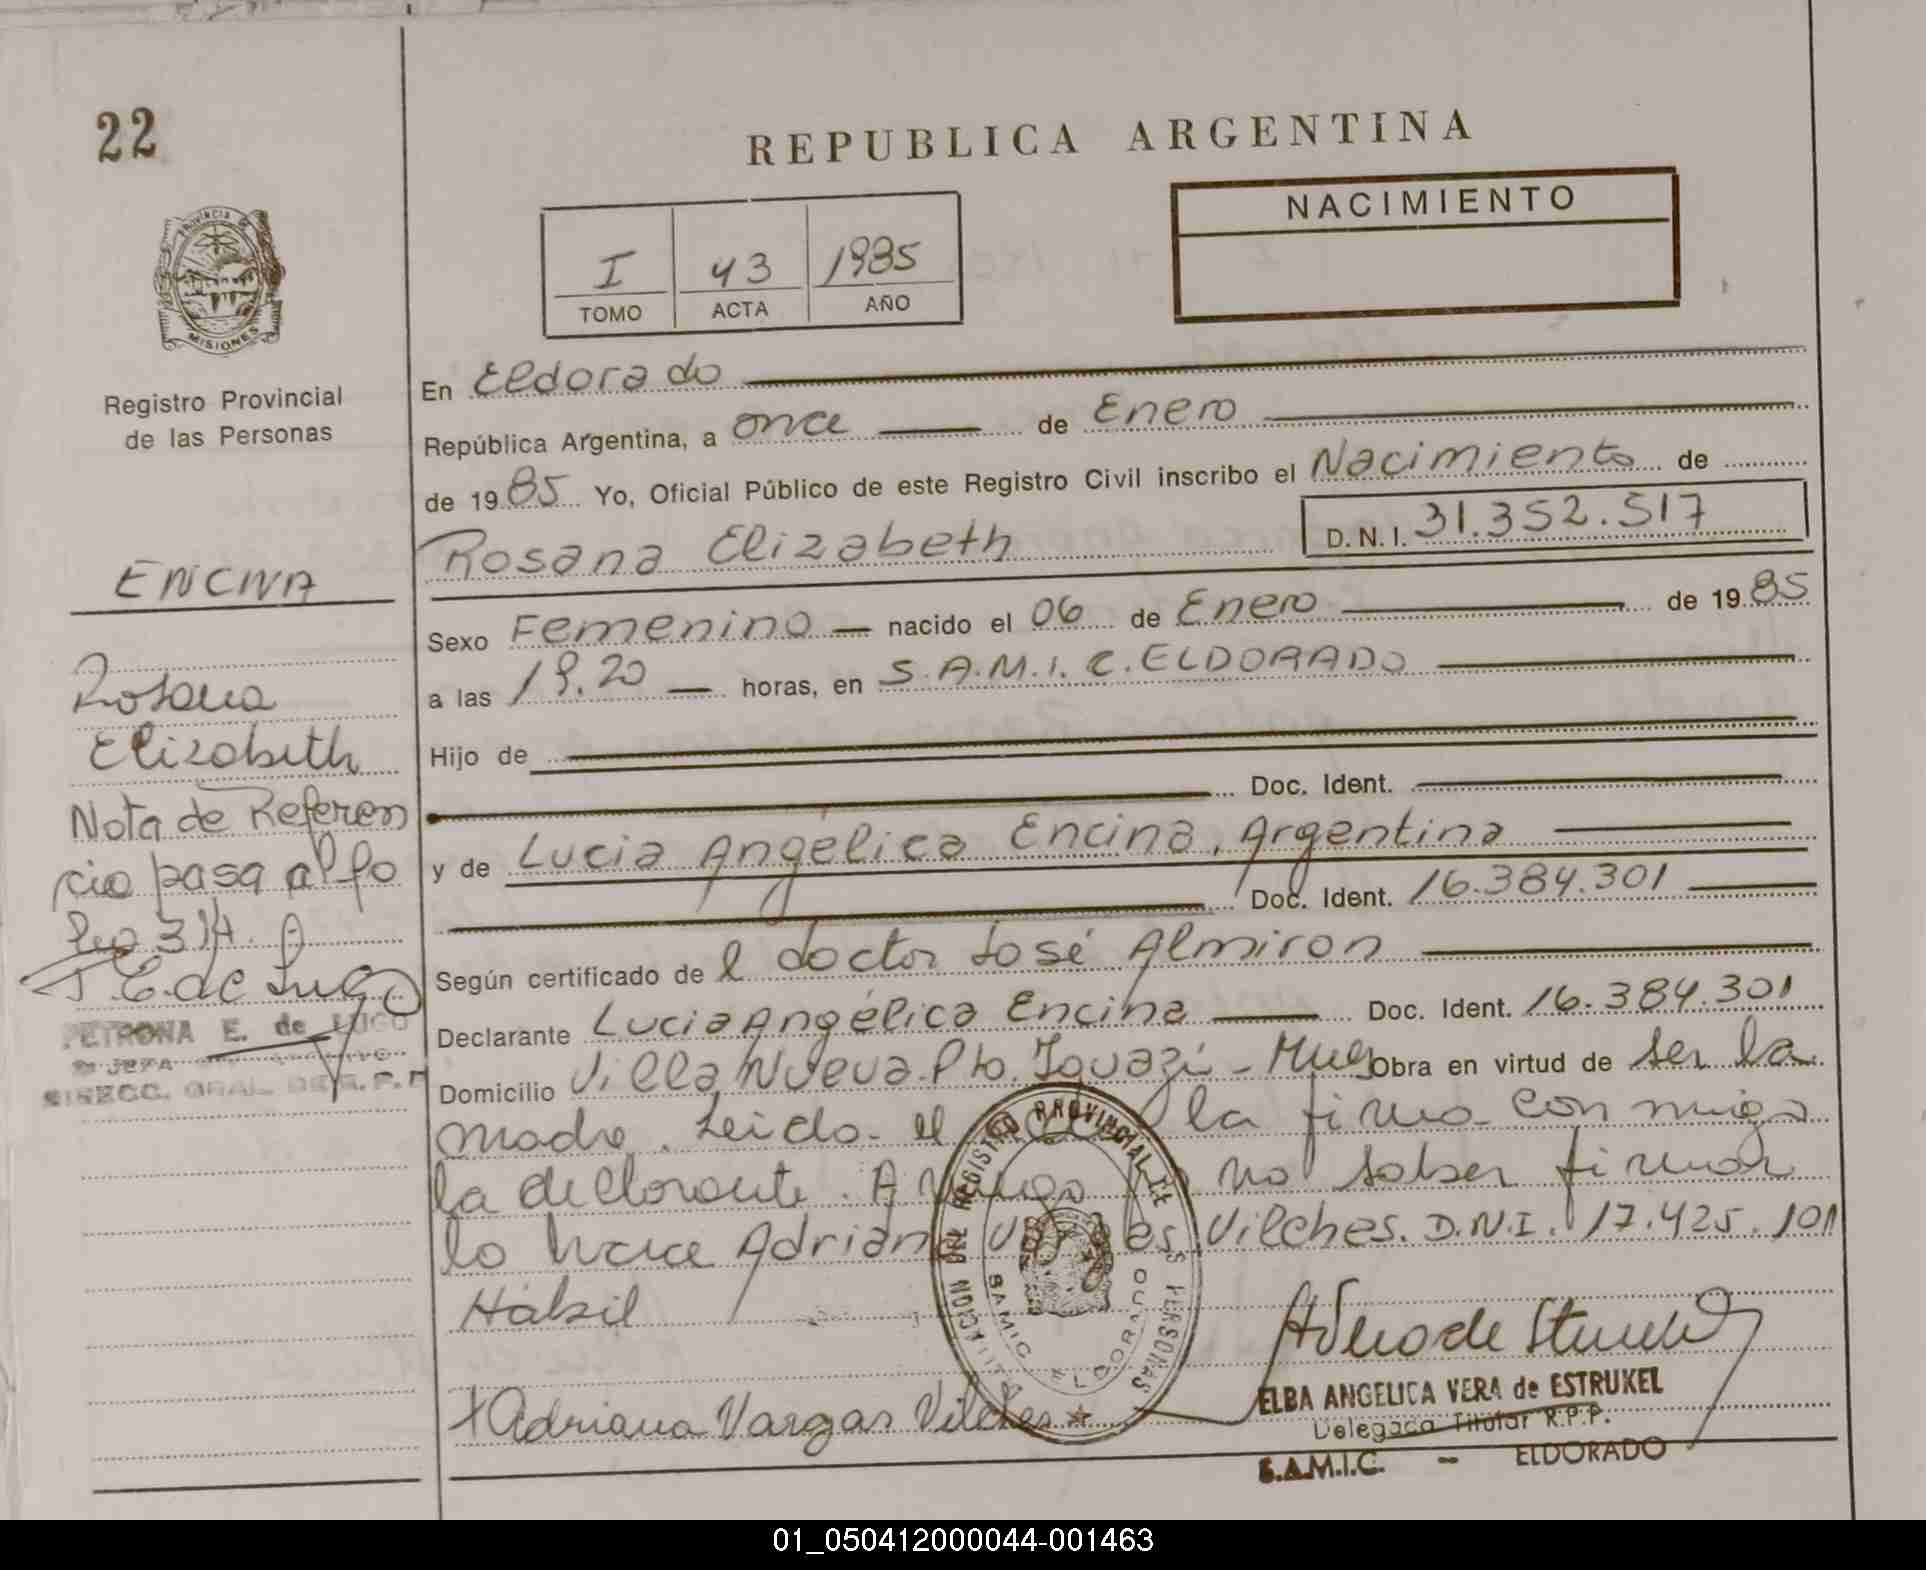 22
REPUBLICA ARGENTINA
NACIMIENTO
I 43 1985
TOMO ACTA AÑO
PROVINCIA DE
MISIONES
Registro Provincial
de las Personas
ENCINA
Rosana
Elizabeth
Nota de Referen
cia pasa al fo
lio 314.
E. de Lugo
PETRONA E. de LUGO
JEFA
DIRECC. GRAL. DE R. P. P.
En Eldorado
República Argentina, a once de Enero
de 1985 Yo, Oficial Público de este Registro Civil inscribo el Nacimiento de
Rosana Elizabeth D.N.I. 31.352.517
Sexo Femenino nacido el 06 de Enero de 1985
a las 19.20 horas, en S.A.M.I.C. ELDORADO
Hijo de
Doc. Ident.
y de Lucia Angélica Encina, Argentina
Doc. Ident. 16.384.301
Según certificado de l doctor José Almiron
Declarante Lucia Angélica Encina Doc. Ident. 16.384.301
Domicilio Villa Nueva. Pto. Iguazú - Mnes Obra en virtud de ser la
madre. Leido el la firma conmigo
la declarante. A no saber firmar
lo hace Adriana Vilches. D.N.I. 17.425.101
Hábil
Adriana Vargas Vilches
DEL REGISTRO PROVINCIAL DE
PERSONAS
SAMIC ELDORADO
ELBA ANGELICA VERA de ESTRUKEL
Delegada Titular R.P.P.
S.A.M.I.C. - ELDORADO
01_050412000044-001463